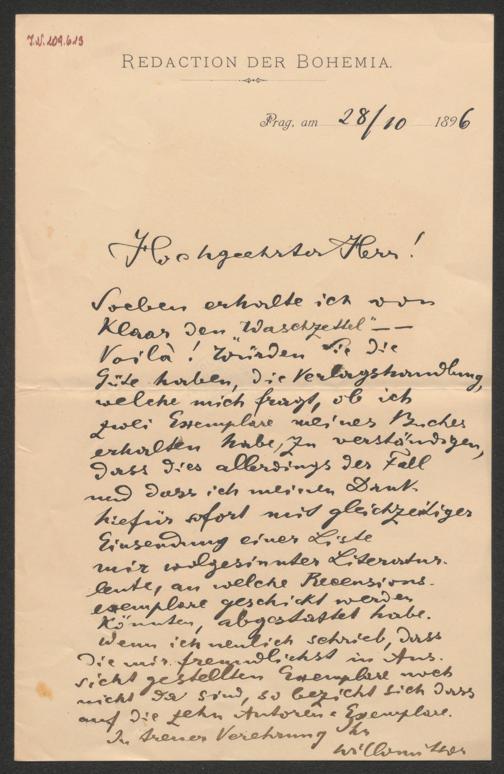 J.N. 109.613
REDACTION DER BOHEMIA.
Prag, am 28/10 1896
Hochgeehrter Herr!
Soeben erhalte ich von
Klaar den "Waschzettel" —
Voilà! Würden Sie die
Güte haben, die Verlagshandlung,
welche mich fragt, ob ich
zwei Exemplare meines Buches
erhalten habe, zu verständigen,
dass dies allerdings der Fall
und dass ich meinen Dank
hiefür sofort mit gleichzeitiger
Einsendung einer Liste
mir wolgesinnter Literatur-
leute, an welche Recensions-
exemplare geschickt werden
könnten, abgestattet habe.
Wenn ich neulich schrieb, dass
die mir freundlichst in Aus-
sicht gestellten Exemplare noch
nicht da sind, so bezieht sich dass
auf die zehn Autoren-Exemplare.
In treuer Verehrung Ihr
Willomitzer